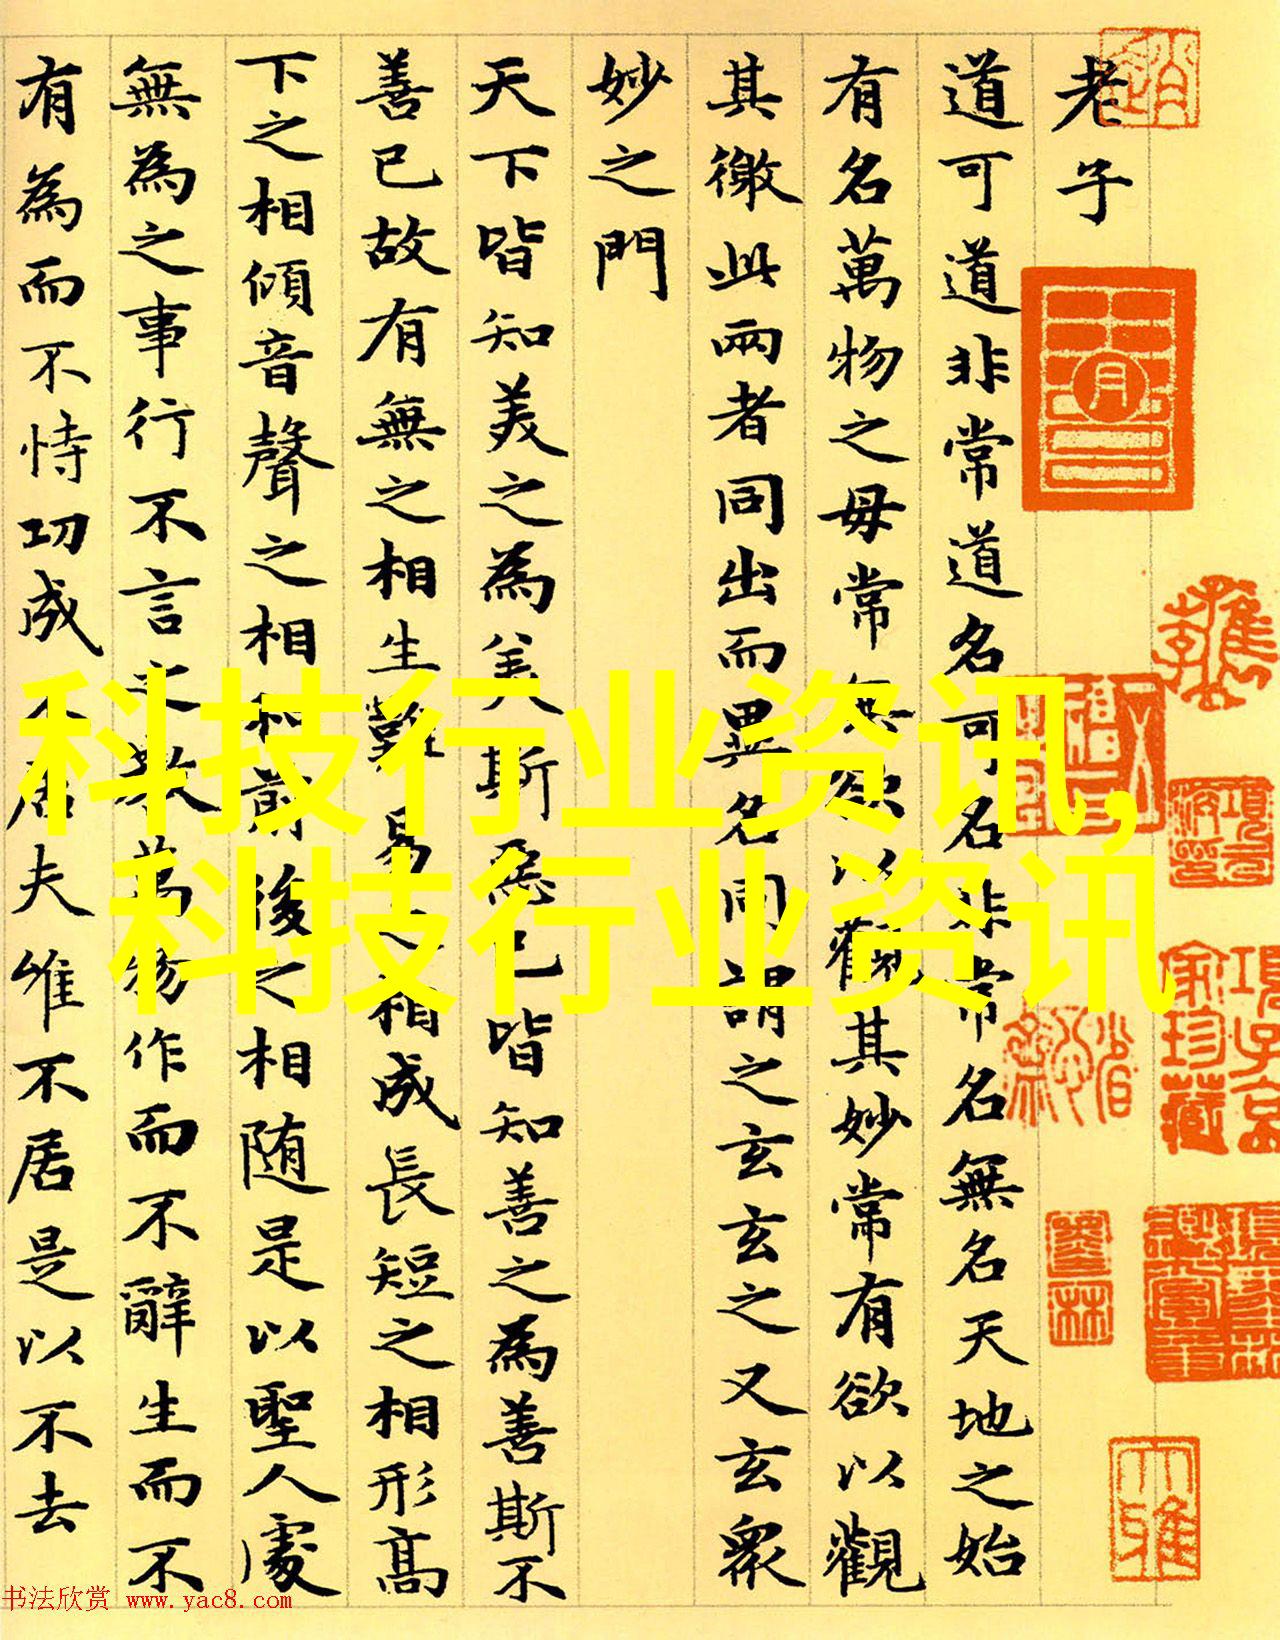 老子
道可道非常道名可名非常名無名天地之始
有名萬物之毋常無欲以觀其妙常有欲以觀
其徼此兩者同出而異名同謂之玄玄之又玄衆
妙之門
天下皆知美之為美斯惡已皆知善之為善斯不
善已故有無之相生難易之相成長短之相形高
下之相傾音聲之相和前後之相随是以聖人處
無為之事行不言之教萬物作而不辭生而不
有為而不恃功成不居夫惟不居是以不去
科技行业资讯,
科技行业资讯
项子京
家珍藏
大雅
书法欣赏 www.yac8.com